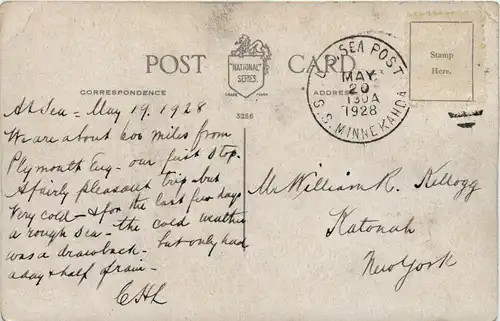 POST CARD
"NATIONAL" SERIES.
TRADE MARK
CORRESPONDENCE
ADDRESS
3256
Stamp
Here.
U.S. SEA POST
MAY
20
130A
1928
S.S. MINNEKAHDA
At Sea - May 19. 1928
We are about 600 miles from
Plymouth Eng - our first stop.
A fairly pleasant trip but
very cold - & for the last few days
a rough sea - the cold weather
was a drawback - but only had
a day & half of rain -
CHL
Mr William R. Kellogg
Katonah
New York